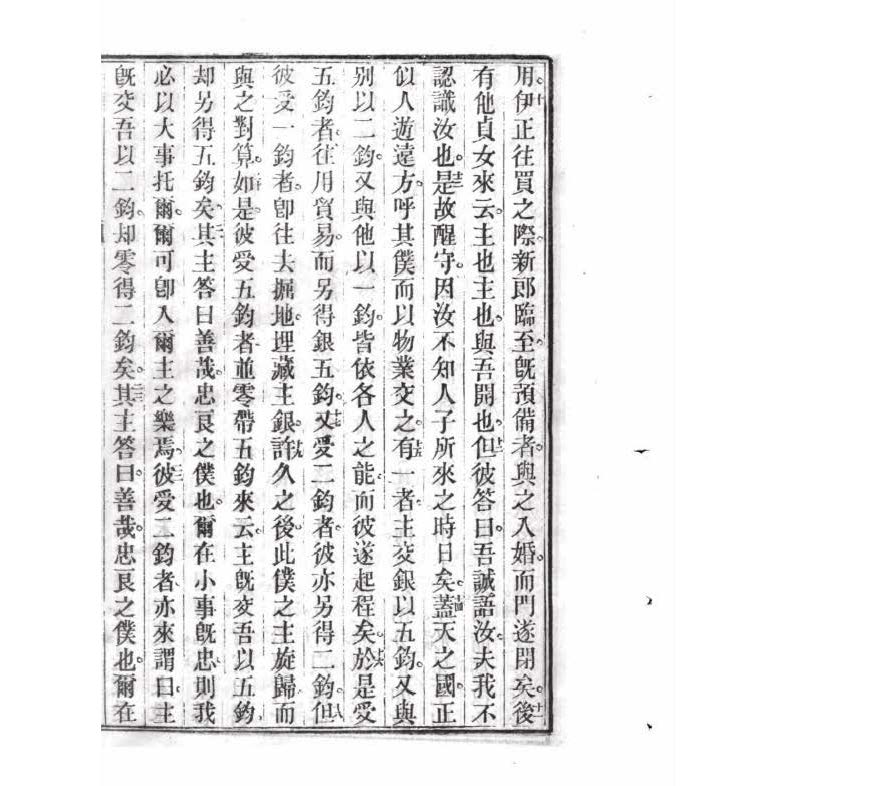 用伊正往買之際新郎臨至既預備者與之入婚而門遂閉矣後
有他貞女來云主也主也與吾開也但彼答曰吾誠語汝夫我不
認識汝也是故醒守因汝不知人子所來之時日矣蓋天之國正
似人遊遠方呼其僕而以物業交之有一者主交銀以五鈞又與
別以二鈞又與他以一鈞皆依各人之能而彼遂起程矣於是受
五鈞者往用貿易而另得銀五鈞又受二鈞者彼亦另得二鈞但
彼受一鈞者卽往去掘地埋藏主銀許久之後此僕之主旋歸而
與之對算如是彼受五鈞者並零帶五鈞來云主既交吾以五鈞
却另得五鈞矣其主答曰善哉忠良之僕也爾在小事既忠則我
必以大事托爾爾可卽入爾主之樂焉彼受二鈞者亦來謂曰主
既交吾以二鈞却零得二鈞矣其主答曰善哉忠良之僕也爾在